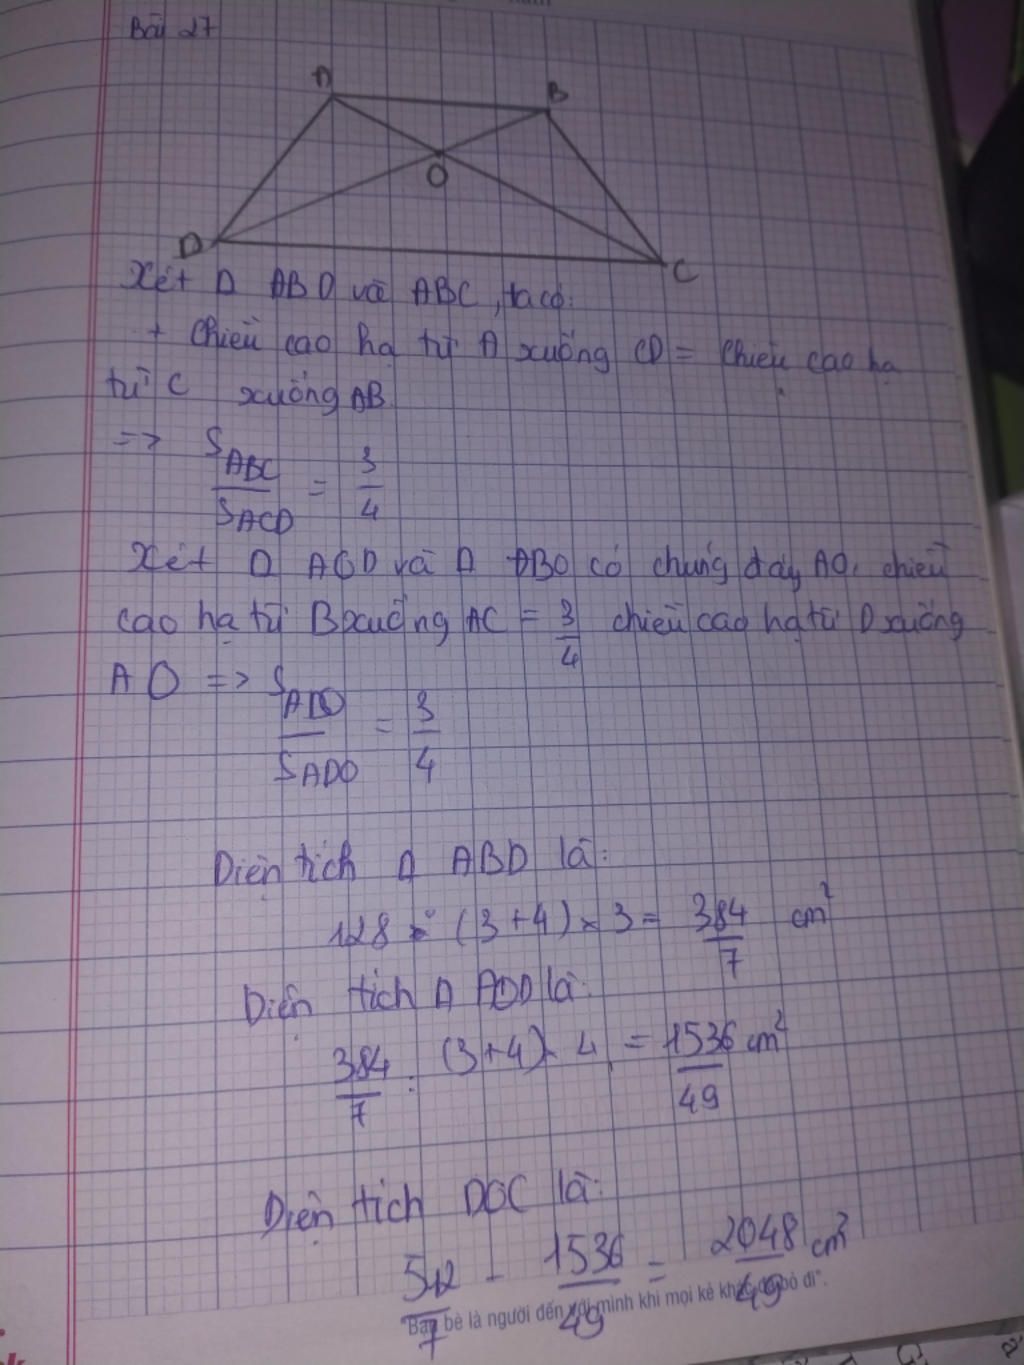 Bài 27
A
B
O
D
C
Xét Δ ABD và ABC, ta có:
+ Chiều cao hạ từ A xuống CD = Chiều cao hạ
từ C xuống AB.
=> S_ABC / S_ACD = 3/4
Xét Δ AOD và Δ ABO có chung đáy AO, chiều
cao hạ từ B xuống AC = 3/4 chiều cao hạ từ D xuống
AO => S_ABO / S_ADO = 3/4
Diện tích Δ ABD là:
128 : (3+4) x 3 = 384/7 cm²
Diện tích Δ AOD là:
384/7 : (3+4) x 4 = 1536/49 cm²
Diện tích DOC là:
512/7 - 1536/49 = 2048/49 cm²
Bạn bè là người đến với mình khi mọi kẻ khác đã bỏ đi".